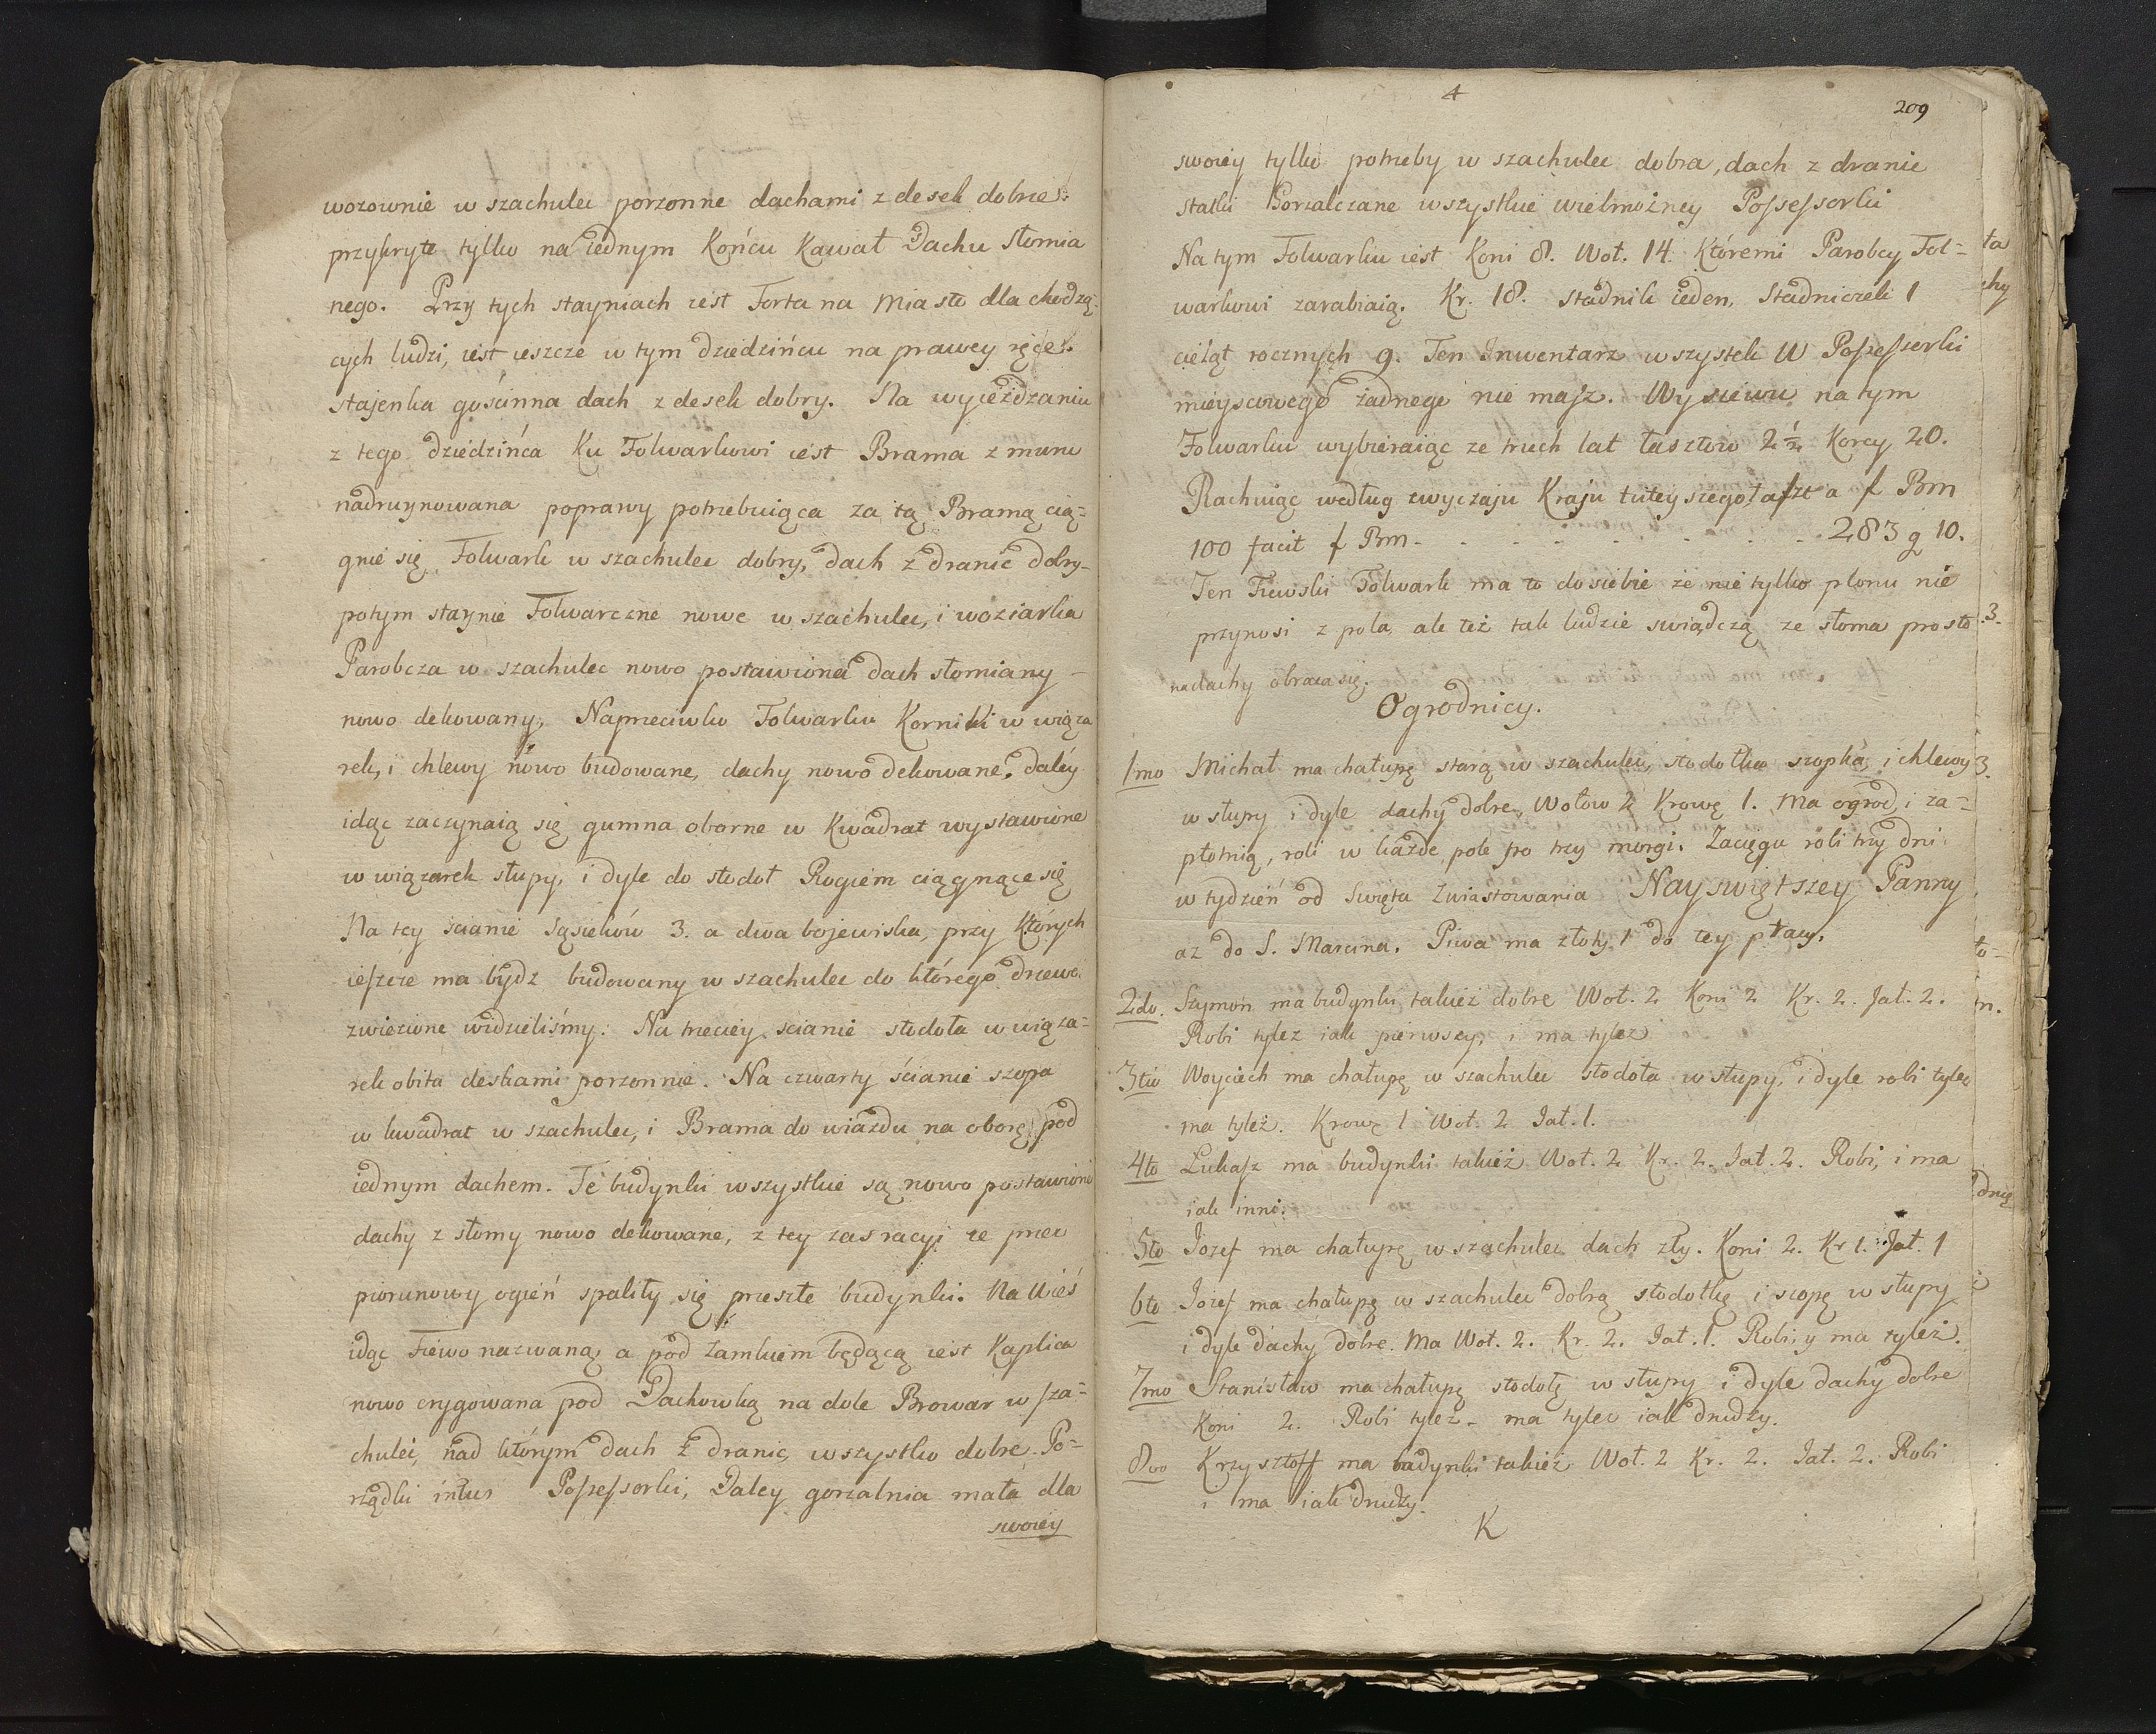 wozownie w szachulec porzonne dachami z desek dobrze
przykryte tylko na iednym Końcu Kawał Dachu Słomia
nego. Przy tych stayniach iest Forta na Miasto dla chodzą-
cych ludzi, iest ieszcze w tym dziedzińcu na prawey ręce
stajenka gościnna dach z desek dobry. Na wyieżdzaniu
z tego dziedzińca Ku Folwarkowi iest Brama z muru
nadruynowana poprawy potrzebuiąca za tą Bramą cią-
gnie się Folwark w szachulec dobry, dach z dranic dobry-
potym staynie Folwarczne nowe w szachulec, i woziarka
Parobcza w szachulec nowo postawiona dach słomiany-
nowo dekowany, Naprzeciwko Folwarku Korniki w wiąza
rek, i chlewy nowo budowane, dachy nowo dekowane. daley
idąc zaczynaią się gumna oborne w Kwadrat wystawione
w wiązarek słupy, i dyle do stodoł Rogiem ciągnące się
Na tey scianie Sąsieków 3. a dwa bojewiska, przy Których
ieszcze ma bydz budowany w szachulec do którego drzewo
zwiezione widzieliśmy. Na trzeciey scianie stodoła w wiąza-
rek obita deskami porzonnie. Na czwarty ścianie szopa
w kwadrat w szachulec, i Brama do wiazdu na oborę pod
iednym dachem. Te budynki wszystkie są nowo postawione
dachy z słomy nowo dekowane, z tey zas racyi ze przez
piorunowy ogień spaliły się przeszłe budynki. Na Wieś
idąc Fiewo nazwaną, a pod Zamkiem będącą iest Kaplica
nowo erygowana pod Dachowką na dole Browar w sza-
chulec, nad którym dach z dranic, wszystko dobre. Po-
rządki intus Possessorki, Daley gorzalnia mała dla
swoiey
4
209
swoiey tylko potrzeby w szachulec dobra, dach z dranic
statki Gorzalczane wszystkie wielmożney Possessorki
Na tym Folwarku iest Koni 8. Woł. 14. Któremi Parobcy Fol-
warkowi zarabiaią. Kr. 18. stadnik ieden, Stadniczek 1
cieląt rocznych 9. Ten Inwentarz wszystek W Possessorki
mieyscowego żadnego nie masz. Wysiewu na tym
Folwarku wybieraiąc ze trzech lat łasztow 2½ Korcy 20.
Rachuiąc według zwyczaju Kraju tuteyszego łaszt a f Prn
100 facit f Prn - - - - - - - 283 g 10.
Ten Fiewski Folwark ma to do siebie że nie tylko plonu nie
przynosi z pola, ale też tak ludzie swiądczą ze słoma prosto
na dachy obraca się.
Ogrodnicy.
1mo Michał ma chałupę starą w szachulec, stodołka szopka, i chlewy
w słupy i dyle dachy dobre, Wołow 2 Krowę 1. Ma ogrod, i za-
płotnią, roli w każde pole po trzy morgi. Zaciągu robi trzy dni
w tydzień od Swięta Zwiastowania Nayswiętszey Panny
az do S. Marcina. Piwa ma złoty 1 do tey pracy.
2do. Szymon ma budynki takież dobre Woł. 2 Koni 2 Kr. 2. Jał. 2.
Robi tylez iak pierwszy, i ma tylez
3tio Woyciech ma chałupę w szachulec stodoła w słupy, i dyle robi tylez
ma tyleż. Krowę 1 Woł. 2 Jał. 1.
4to Lukasz ma budynki takież Woł. 2 Kr. 2. Jał. 2. Robi, i ma
iak inni.
5to Jozef ma chałupę w szachulec dach zły. Koni 2. Kr 1. Jał. 1
6to Jozef ma chałupę w szachulec dobrą stodołkę i szopę w słupy
i dyle dachy dobre. Ma Woł. 2. Kr. 2. Jał. 1. Robi, y ma tyleż.
7mo Stanisław ma chałupę stodołę w słupy i dyle dachy dobre
Koni 2. Robi tylez - ma tylez iak drudzy.
8vo Krzysztoff ma budynki takież Woł. 2 Kr. 2. Jał. 2. Robi
i ma iak drudzy.
K